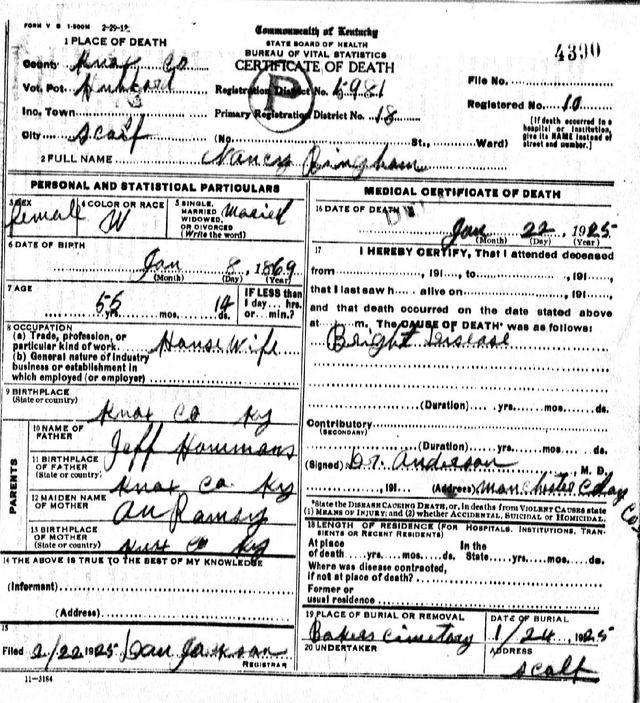 FORM V S 1-500M 2-29-12
Commonwealth of Kentucky
STATE BOARD OF HEALTH
BUREAU OF VITAL STATISTICS
CERTIFICATE OF DEATH
4390
1 PLACE OF DEATH
County Knox Co
Vot. Pct. Hubbard
Registration District No. 5981
File No.
Inc. Town
Primary Registration District No. 18
Registered No. 10
P
City Scalf (No. St., Ward)
[If death occurred in a hospital or institution, give its NAME instead of street and number.]
2 FULL NAME Nancy Bingham
PERSONAL AND STATISTICAL PARTICULARS
3 SEX female
4 COLOR OR RACE W
5 SINGLE, MARRIED WIDOWED, OR DIVORCED (Write the word) Maried
6 DATE OF BIRTH
Jan 8, 1869
(Month) (Day) (Year)
7 AGE
55 yrs. mos. 14 ds.
IF LESS than 1 day... hrs. or... min.?
8 OCCUPATION
(a) Trade, profession, or particular kind of work House Wife
(b) General nature of industry business or establishment in which employed (or employer)
9 BIRTHPLACE
(State or country)
Knox Co Ky
PARENTS
10 NAME OF FATHER Jeff Hammans
11 BIRTHPLACE OF FATHER (State or country)
Knox Co Ky
12 MAIDEN NAME OF MOTHER An Ramsy
13 BIRTHPLACE OF MOTHER (State or country) Knox Co Ky
14 THE ABOVE IS TRUE TO THE BEST OF MY KNOWLEDGE
(Informant)
(Address)
15
Filed 2/22 1925 Dan Jackson
REGISTRAR
11-3184
MEDICAL CERTIFICATE OF DEATH
16 DATE OF DEATH
Jan 22, 1925
(Month) (Day) (Year)
17 I HEREBY CERTIFY, That I attended deceased
from , 191 , to , 191 ,
that I last saw h alive on , 191 ,
and that death occurred on the date stated above
at m. The CAUSE OF DEATH* was as follows:
Bright Disease
(Duration) yrs. mos. ds.
Contributory
(SECONDARY)
(Duration) yrs. mos. ds.
(Signed) Dr. Anderson, M. D.
, 191 (Address) Manchester
*State the DISEASE CAUSING DEATH, or, in deaths from VIOLENT CAUSES state
(1) MEANS OF INJURY; and (2) whether ACCIDENTAL, SUICIDAL or HOMICIDAL.
18 LENGTH OF RESIDENCE (FOR HOSPITALS, INSTITUTIONS, TRANSIENTS OR RECENT RESIDENTS)
At place of death yrs. mos. ds. In the State yrs. mos. ds.
Where was disease contracted, if not at place of death?
Former or usual residence
19 PLACE OF BURIAL OR REMOVAL
Bakers Cimetary
DATE OF BURIAL
1/24, 1925
20 UNDERTAKER
ADDRESS
Scalf